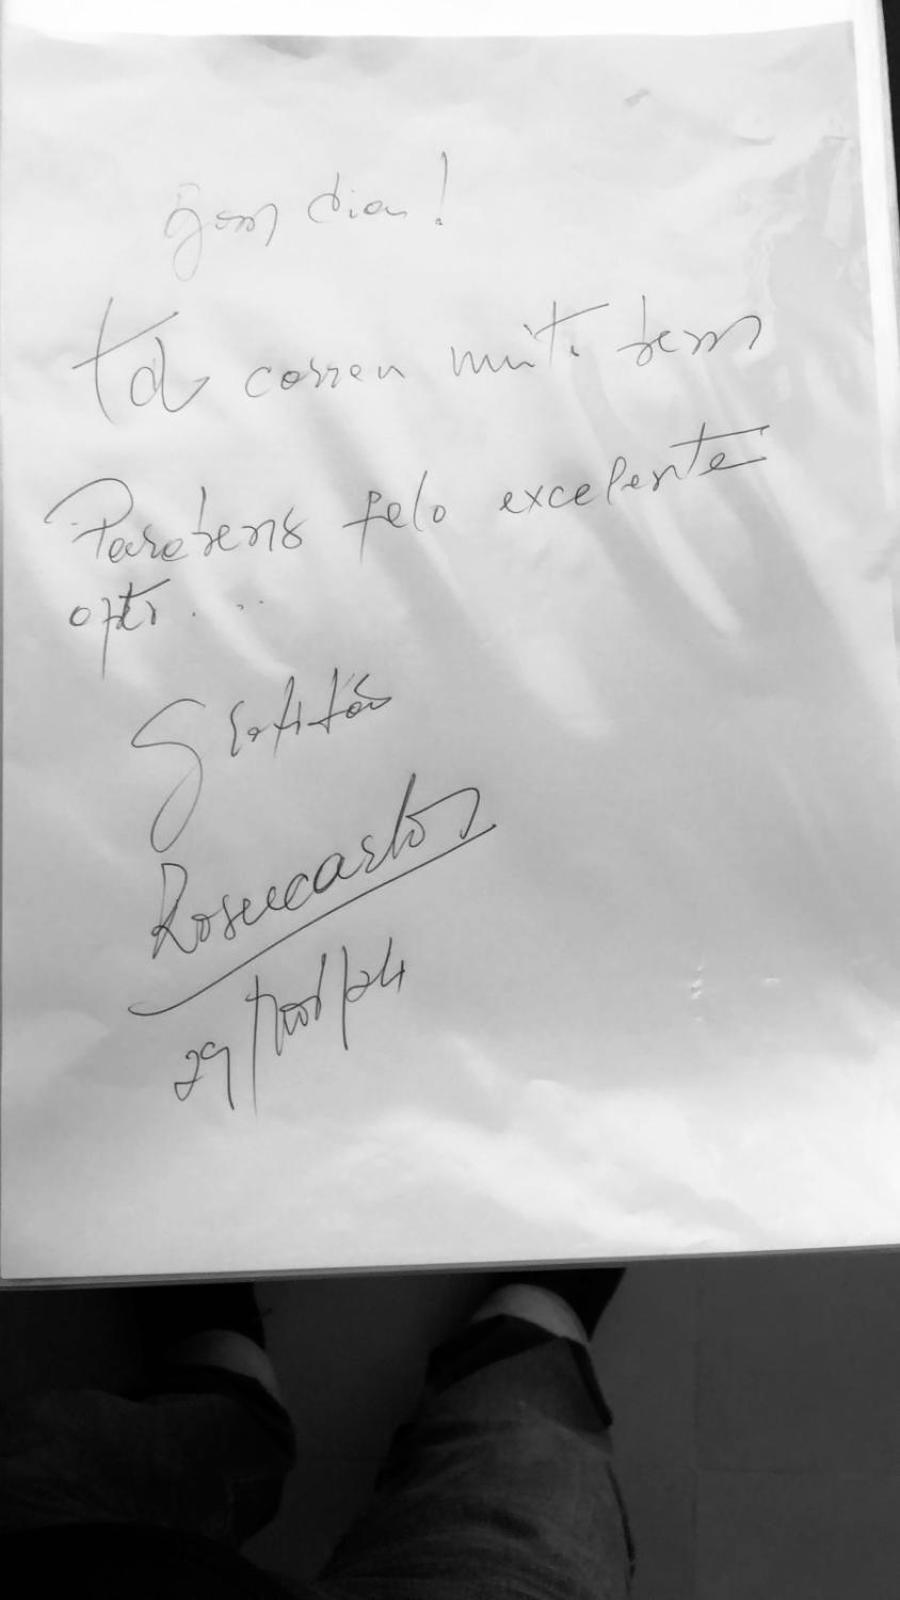 Bom dia!
td correu muito bem
Parabens pelo excelente
opti...
Gratidão
Rosucarlos
29/Nov/24